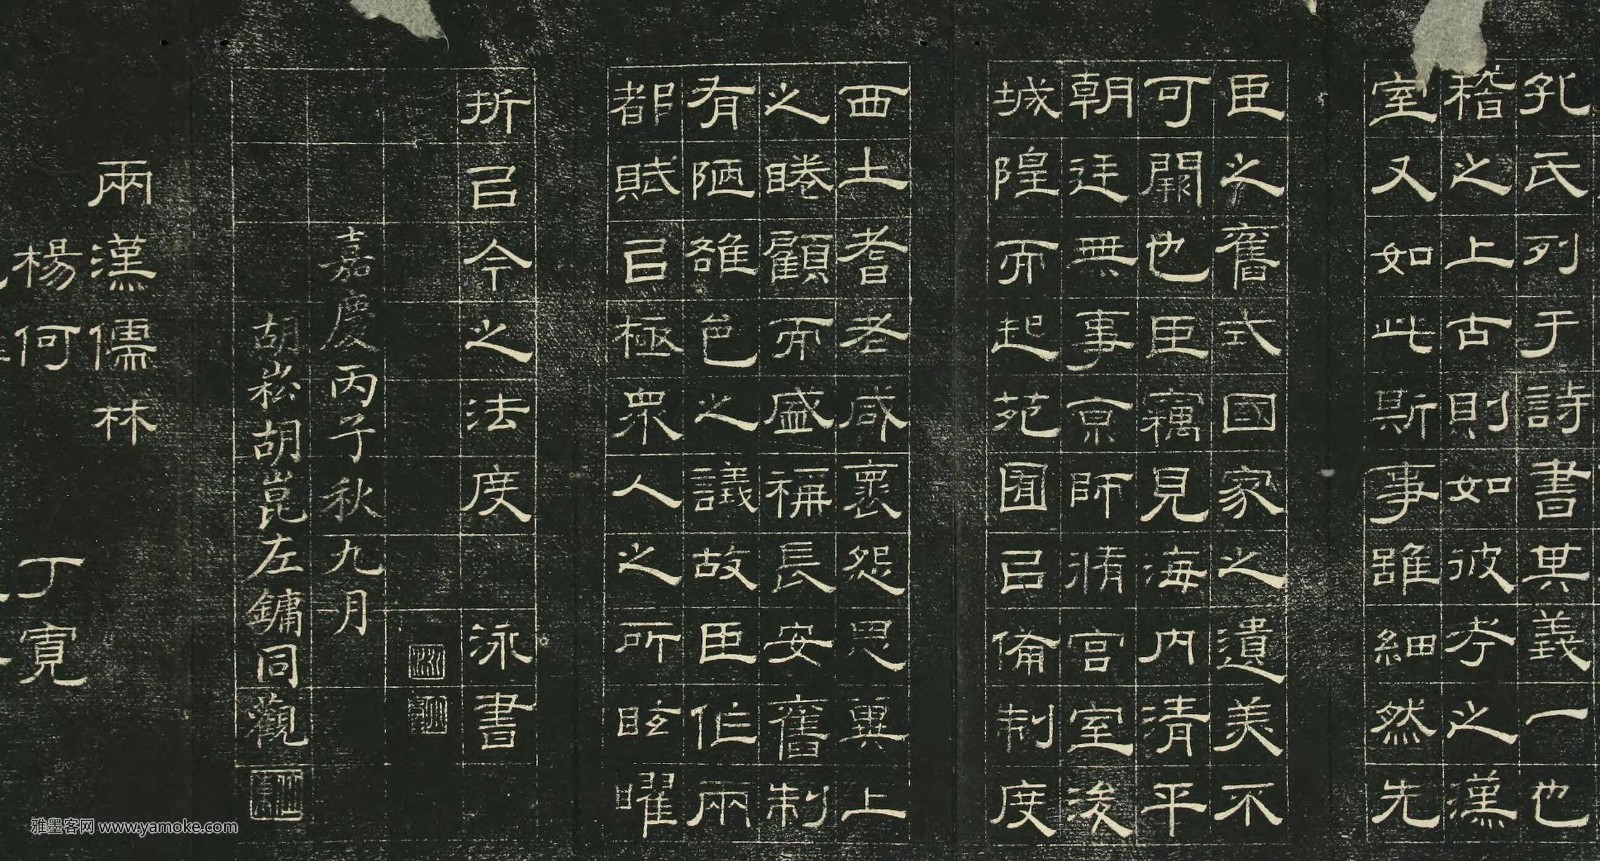 孔氏列于詩書其義一也
稽之上古則如彼考之漢
室又如此斯事雖細然先
臣之舊式國家之遺美不
可闕也臣竊見海内清平
朝廷無事京師脩宮室浚
城隍而起苑囿㠯俻制度
西土耆老咸褱怨思兾上
之睠顧而盛稱長安舊制
有陋雒邑之議故臣作兩
都賦㠯極衆人之所眩曜
折㠯今之法度　泳書
嘉慶丙子秋九月
胡崧胡崑左鏞同觀
兩漢儒林
楊何　丁寬
雅墨客网 www.yamoke.com